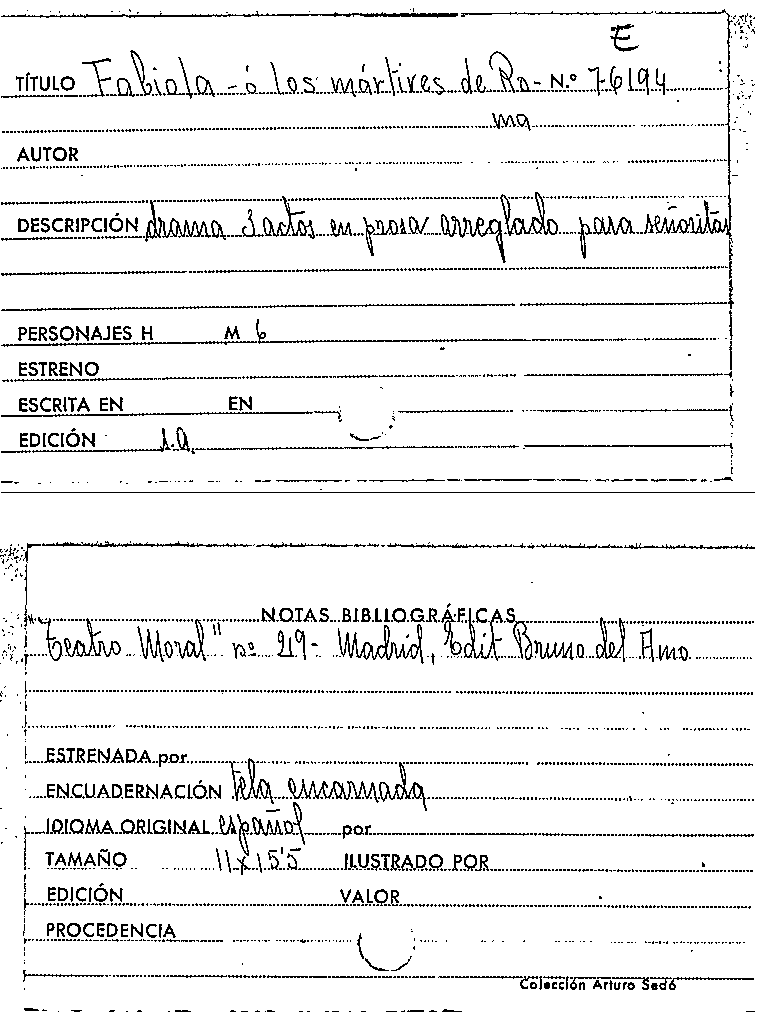 E
TÍTULO Fabiola - ó los mártires de Ro- N.º 76194
ma
AUTOR
DESCRIPCIÓN drama 3 actos en prosa arreglado para señoritas
PERSONAJES H M 6
ESTRENO
ESCRITA EN EN
EDICIÓN s.a.
NOTAS BIBLIOGRÁFICAS
"Teatro Moral" nº 219 - Madrid, Edit Bruno del Amo
ESTRENADA por
ENCUADERNACIÓN tela encarnada
IDIOMA ORIGINAL español por
TAMAÑO 11x15'5 ILUSTRADO POR
EDICIÓN VALOR
PROCEDENCIA
Colección Arturo Sedó